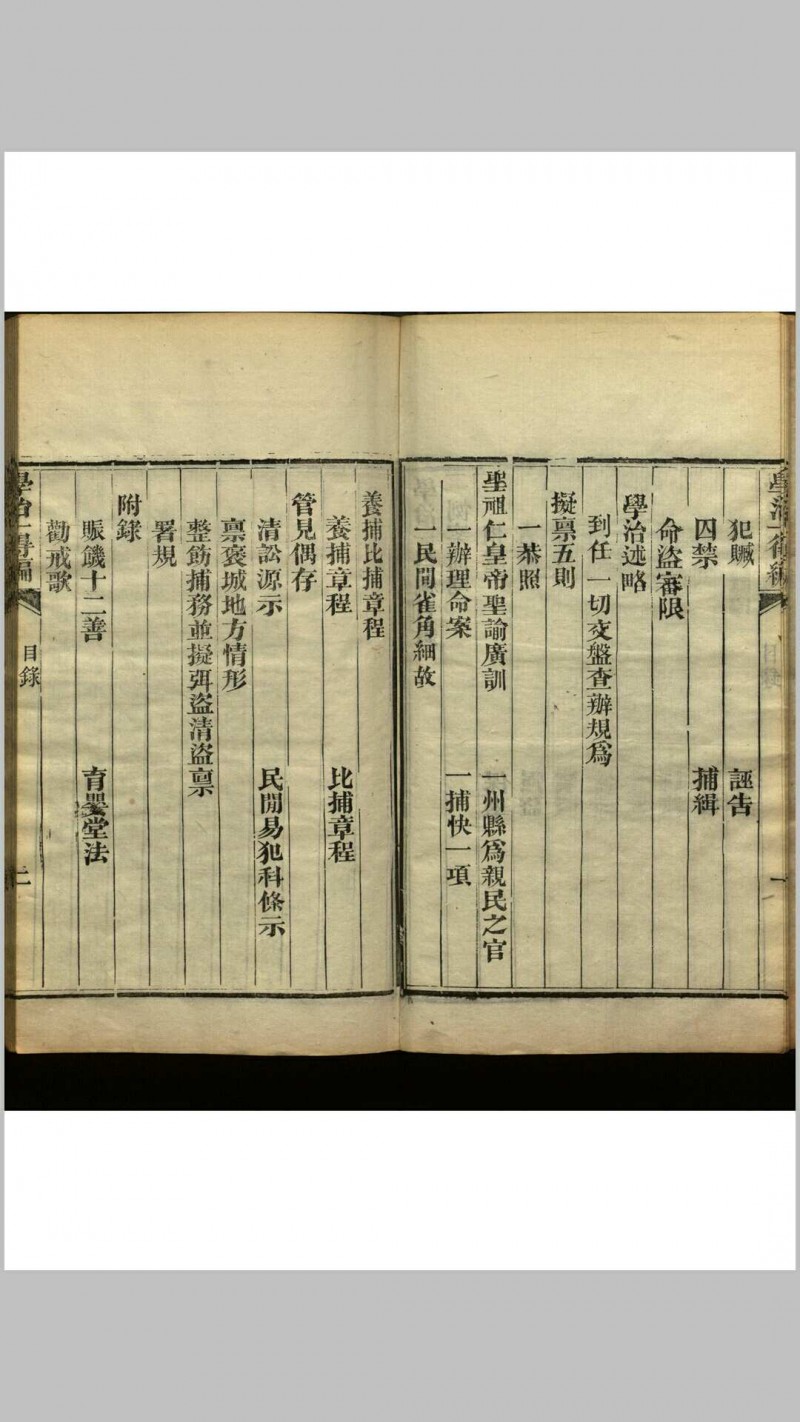 學治一得編
一
犯贓　誣告
囚禁　捕緝
命盜審限
學治述略
到任一切交盤查辦規為
擬禀五則
一恭照
聖祖仁皇帝聖諭廣訓　一州縣爲親民之官
一辦理命案　一捕快一項
一民間雀角細故
養捕比捕章程
養捕章程　比捕章程
管見偶存
清訟源示　民間易犯科條示
禀褒城地方情形
整飭捕務並擬弭盜清盜禀
署規
附錄
賑饑十二善　育嬰堂法
勸戒歌
學治一得編
目錄
二